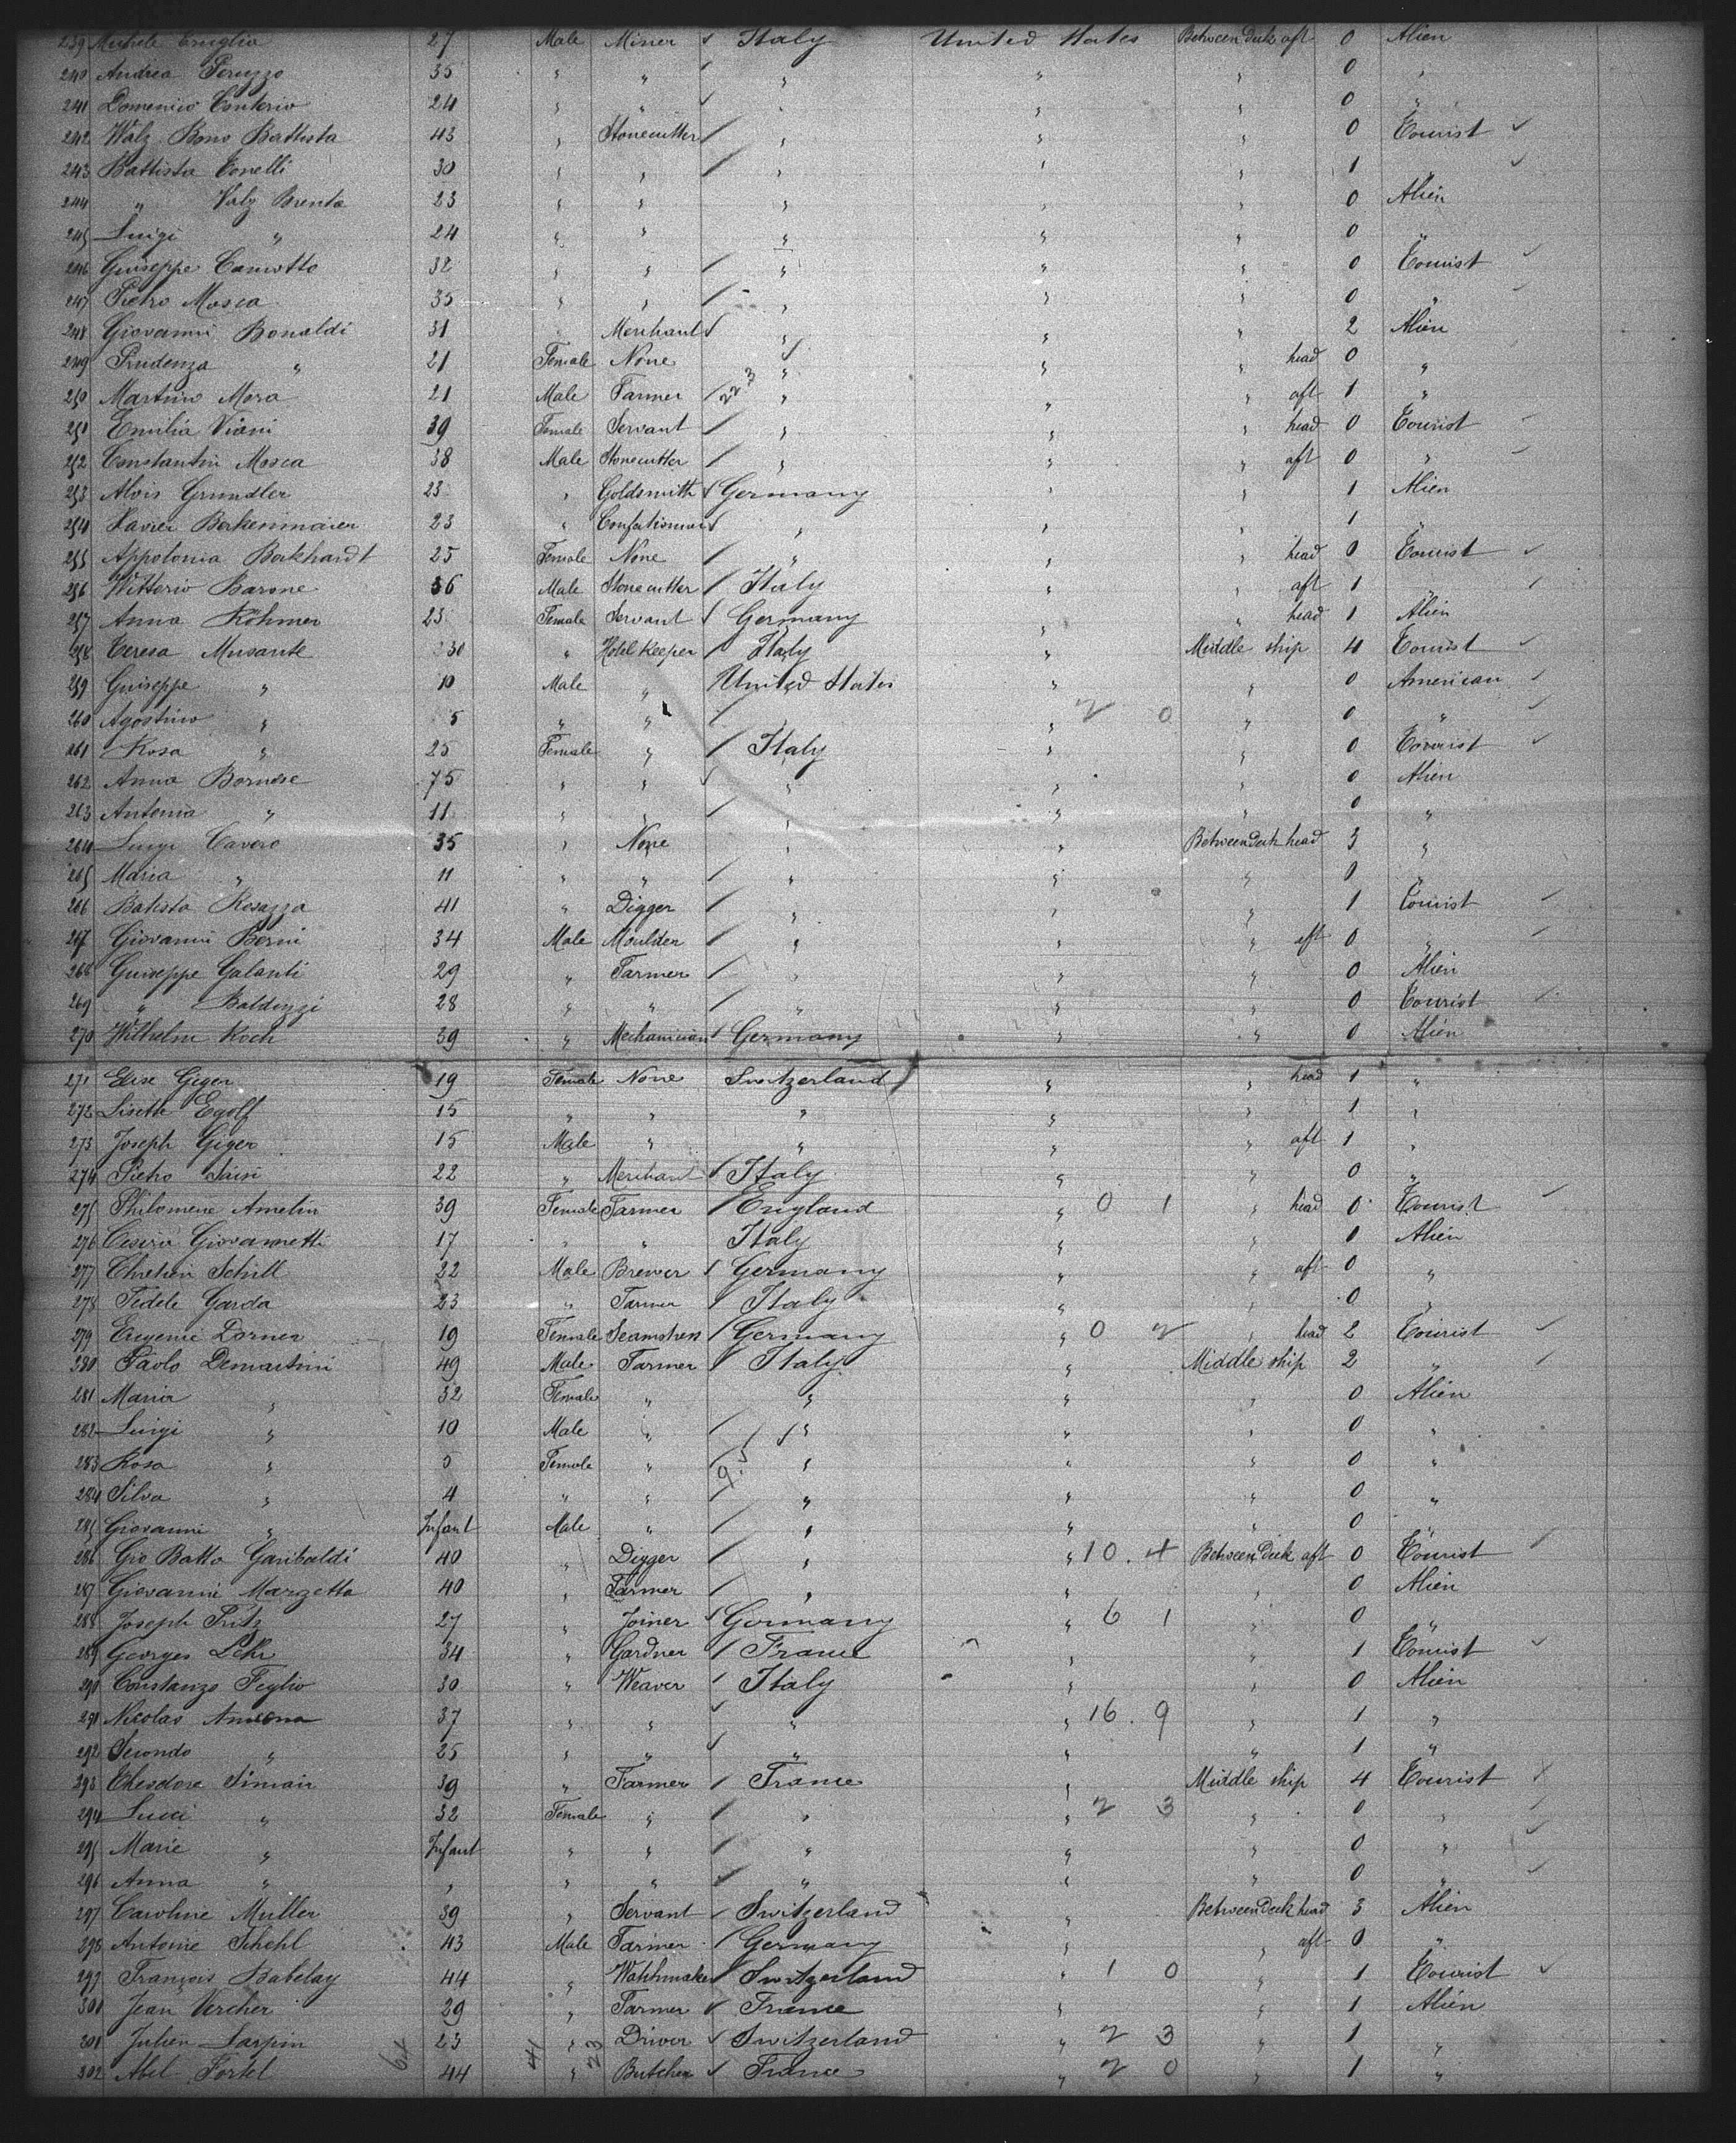 239 Michele Eniglio 27 Male Miner Italy United States Between Deck aft 0 Alien
240 Andrea Peruzzo 35 " " " " " 0 "
241 Domenico Conterio 24 " " " " " 0 "
242 Walz Bono Battista 43 " Stonecutter " " " 0 Tourist
243 Battista Tonelli 30 " " " " " 1 "
244 " Valz Brenta 23 " " " " " 0 Alien
245 Luigi " 24 " " " " " 0 "
246 Guiseppe Canotto 32 " " " " " 0 Tourist
247 Pietro Mosca 35 " " " " " 0 "
248 Giovanni Bonaldi 31 Merchant " " " 2 Alien
249 Prudenza " 21 Female None " " " head 0 "
250 Martino Mora 21 Male Farmer 223 " " " aft 1 "
251 Emilia Viani 39 Female Servant " " " head 0 Tourist
252 Constantin Mosca 38 Male Stonecutter " " " aft 0 "
253 Alois Grundler 23 " Goldsmith Germany " " 1 Alien
254 Xavier Berkenmaier 23 " " " " 1 "
255 Appolonia Borkhardt 25 Female None " " " head 0 Tourist
256 Wittorio Barone 36 Male Stonecutter Italy " " aft 1 "
257 Anna Röhmer 23 Female Servant Germany " " head 1 Alien
258 Teresa Musante 30 " Hotel Keeper Italy " Middle ship 4 Tourist
259 Guiseppe " 10 Male " United States " " 0 American
260 Agostino " 5 " " " " 2 0 " 0 "
261 Rosa " 25 Female " Italy " " 0 Tourist
262 Anna Bornese 75 " " " " " 0 Alien
263 Antonia " 11 " " " " " 0 "
264 Luigi Cavero 35 " None " " Between Deck head 3 "
265 Maria " 11 " " " " " 0 "
266 Batista Rosazza 41 " Digger " " " 1 Tourist
267 Giovanni Berni 34 Male Moulder " " " aft 0 "
268 Guiseppe Galanti 29 " Farmer " " " 0 Alien
269 " Balduzzi 28 " " " " " 0 Tourist
270 Wilhelm Koch 39 " Mechanician Germany " " 0 Alien
271 Elise Giger 19 Female None Switzerland " " head 1 "
272 Lisette Egolf 15 " " " " " 1 "
273 Joseph Giger 15 Male " " " " aft 1 "
274 Pietro 22 " Merchant Italy " " 0 "
275 Philomene Amelin 39 Female Farmer England " 0 1 " head 0 Tourist
276 Cesira Giovannetti 17 " " Italy " " 0 Alien
277 Chretien Schill 22 Male Brewer Germany " " aft 0 "
278 Fedele Garda 23 " Farmer Italy " " 0 "
279 Eugenie Dorner 19 Female Seamstress Germany " 0 2 " head 2 Tourist
280 Paolo Demartini 49 Male Farmer Italy " Middle ship 2 "
281 Maria " 32 Female " " " " 0 Alien
282 Luigi " 10 Male " " " " 0 "
283 Rosa " 5 Female " 9.5 " " " 0 "
284 Silva " 4 " " " " " 0 "
285 Giovanni " Infant Male " " " " 0 "
286 Gio Batta Garibaldi 40 " Digger " " 10. 4 Between Deck aft 0 Tourist
287 Giovanni Marzetta 40 " Farmer " " " 0 Alien
288 Joseph Fritz 27 " Joiner Germany " 6 1 " 0 "
289 Georges Lehr 34 " Gardner France " " 1 Tourist
290 Constanzo Feglio 30 " Weaver Italy " " 0 Alien
291 Nicolas 37 " " " " 16. 9 " 1 "
292 Secondo " 25 " " " " " 1 "
293 Theodore Simair 39 " Farmer France " Middle ship 4 Tourist
294 Lucci " 32 Female " " " 2 3 " 0 "
295 Marie " Infant " " " " " 0 "
296 Anna " " " " " " " 0 "
297 Caroline Muller 39 " Servant Switzerland " Between Deck head 3 Alien
298 Antoine Schehl 43 Male Farmer Germany " " aft 0 "
299 François Babelay 44 " Watchmaker Switzerland " 1 0 " 1 Tourist
300 Jean Vercher 29 " Farmer France " " 1 Alien
301 Julien Larpin 23 " Driver Switzerland " 2 3 " 1 "
302 Abel Fortel 44 " Butcher France " 2 0 " 1 "
64 41 23